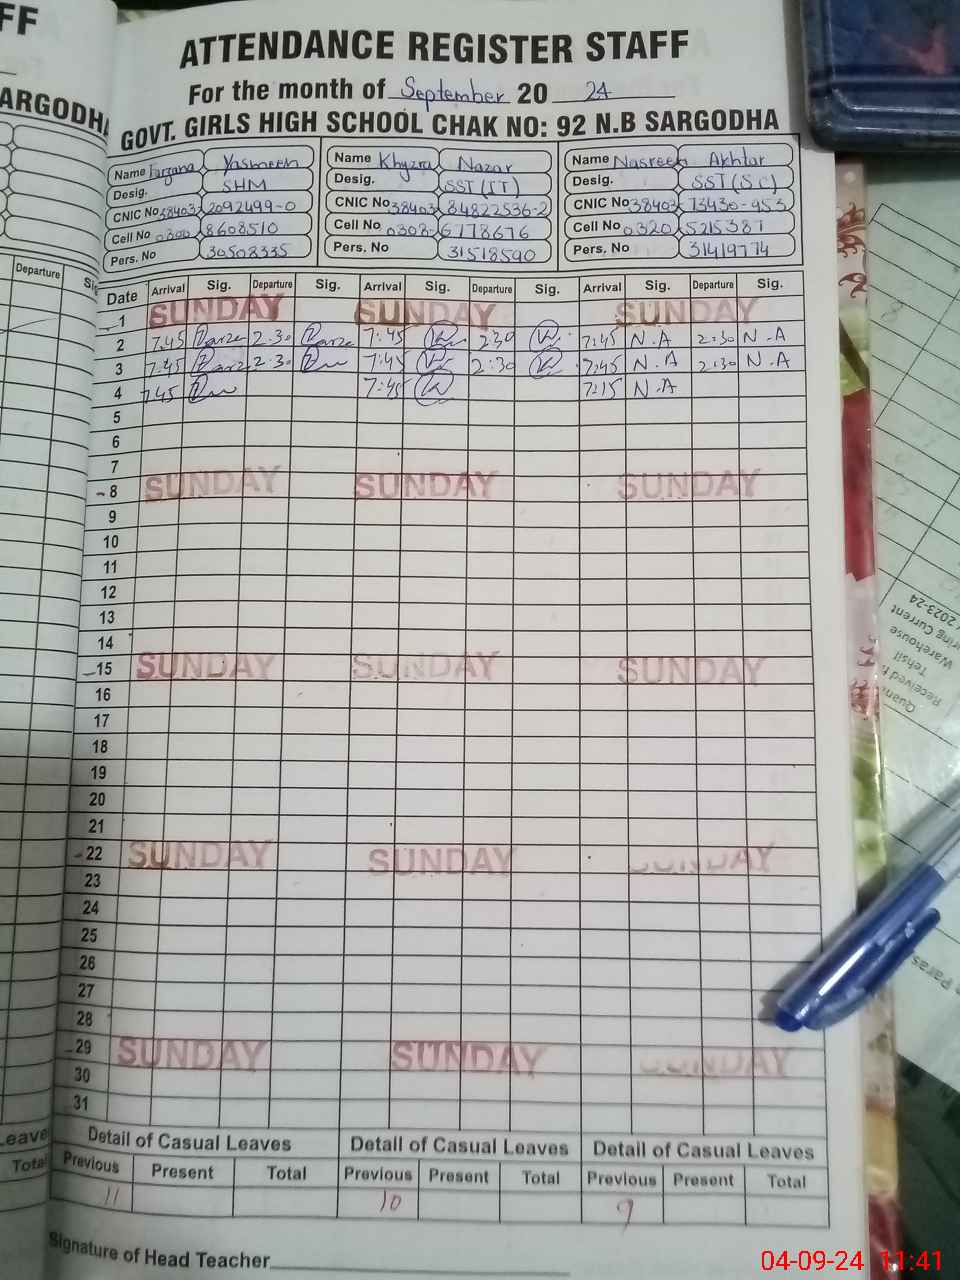 FF
ARGODHA
Departure
Sig
eave
Total
ATTENDANCE REGISTER STAFF
For the month of September 20 24
GOVT. GIRLS HIGH SCHOOL CHAK NO: 92 N.B SARGODHA
Name Farzana Yasmeen Name Khyzra Nazar Name Nasreen Akhtar
Desig. SHM Desig. SST(IT) Desig. SST(SC)
CNIC No 38403- 2092499-0 CNIC No 38403- 84822536-2 CNIC No 38403- 73430-953
Cell No 0300 8608510 Cell No 0308- 6778676 Cell No 0320 5215387
Pers. No 30508335 Pers. No 31518590 Pers. No 31419774
Date Arrival Sig. Departure Sig. Arrival Sig. Departure Sig. Arrival Sig. Departure Sig.
1 SUNDAY SUNDAY SUNDAY
2 7.45 2.30 7:45 2:30 7:45 N.A 2:30 N.A
3 7:45 2.30 7:45 2:30 7:45 N.A 2:30 N.A
4 7.45 7:45 7:15 N.A
5
6
7
8 SUNDAY SUNDAY SUNDAY
9
10
11
12
13
14
15 SUNDAY SUNDAY SUNDAY
16
17
18
19
20
21
22 SUNDAY SUNDAY SUNDAY
23
24
25
26
27
28
29 SUNDAY SUNDAY SUNDAY
30
31
Detail of Casual Leaves Detail of Casual Leaves Detail of Casual Leaves
Previous Present Total Previous Present Total Previous Present Total
11 10 9
Signature of Head Teacher
2023-24
ring Current
Warehouse
Tehsil
Received
Quan
Paras
04-09-24 11:41